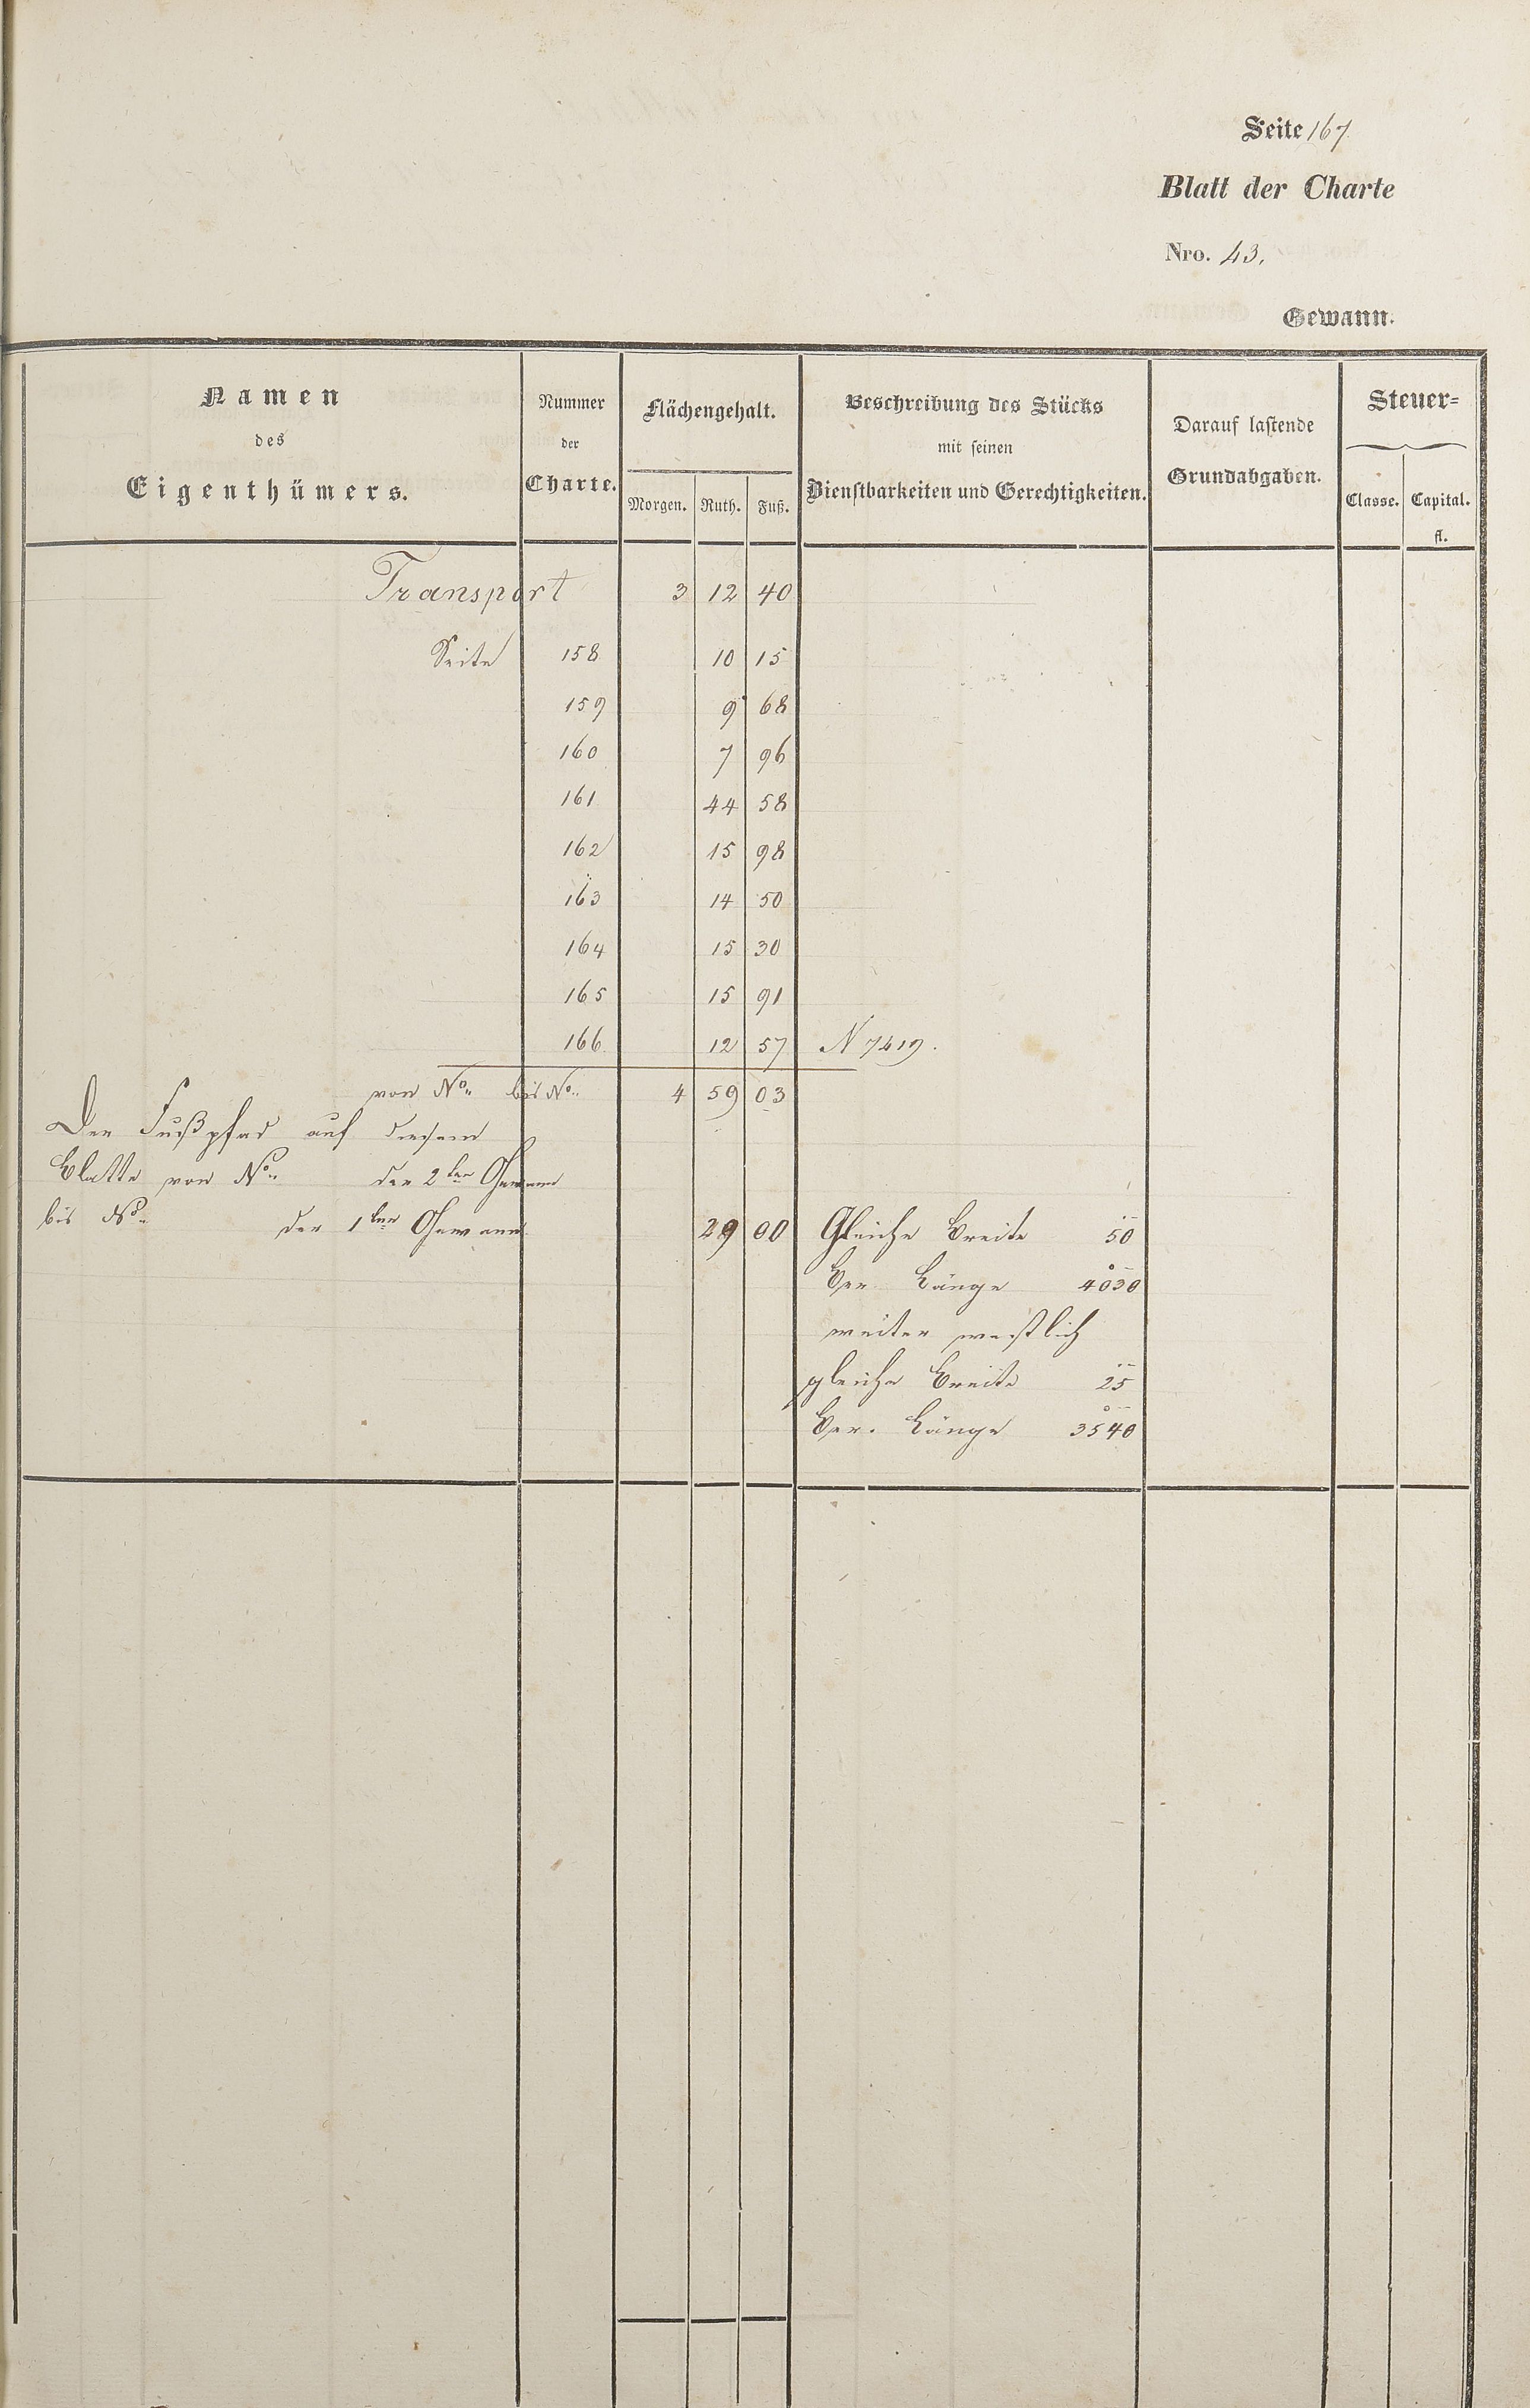 Seite 167
Blatt der Charte
Nro. 43.
Gewann.
Namen des Eigenthümers.
Nummer der Charte.
Flächengehalt.
Morgen. Ruth. Fuß.
Beschreibung des Stücks mit seinen Dienstbarkeiten und Gerechtigkeiten.
Darauf lastende Grundabgaben.
Steuer=
Classe. Capital.
fl.
Transport 3 12 40
Seite 158 10 15
159 9 68
160 7 96
161 44 58
162 15 98
163 14 50
164 15 30
165 15 91
166 12 57 N 7419.
von No. bis No. 4 59 03
Der Fußpfad auf diesem
Blatte von No. der 2ten Gewann
bis No. der 1ten Gewann 29 00 Gleiche Breite 50
Ber. Länge 4030
weiter westlich
gleiche Breite 25
Ber. Länge 3540